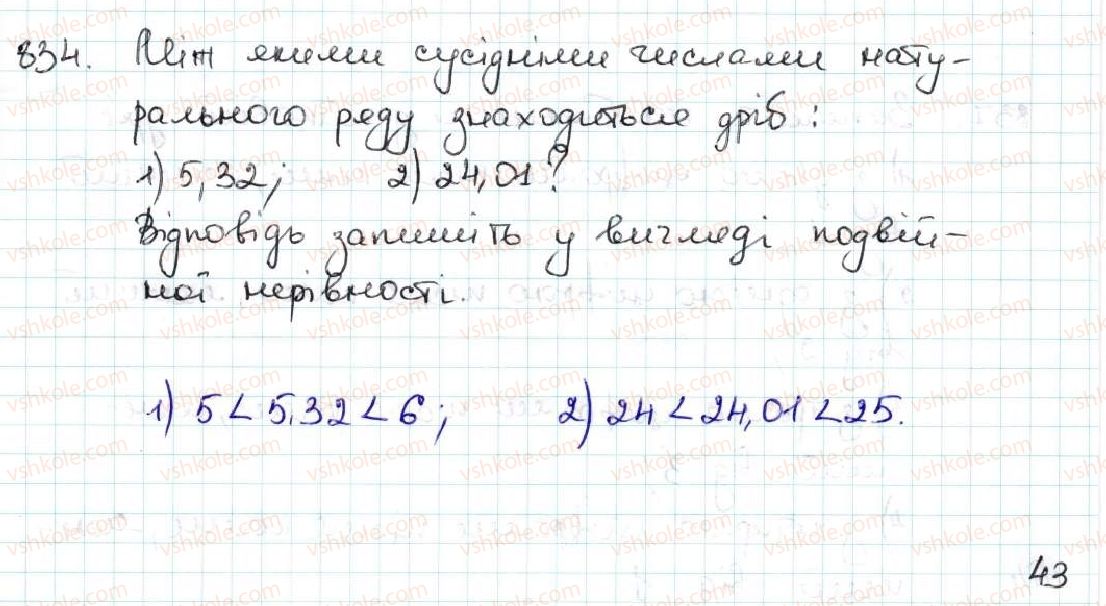 834. Між якими сусідніми числами нату-
рального ряду знаходиться дріб:
1) 5,32; 2) 24,01?
Відповідь запишіть у вигляді подвій-
ної нерівності.
1) 5 < 5,32 < 6; 2) 24 < 24,01 < 25.
43